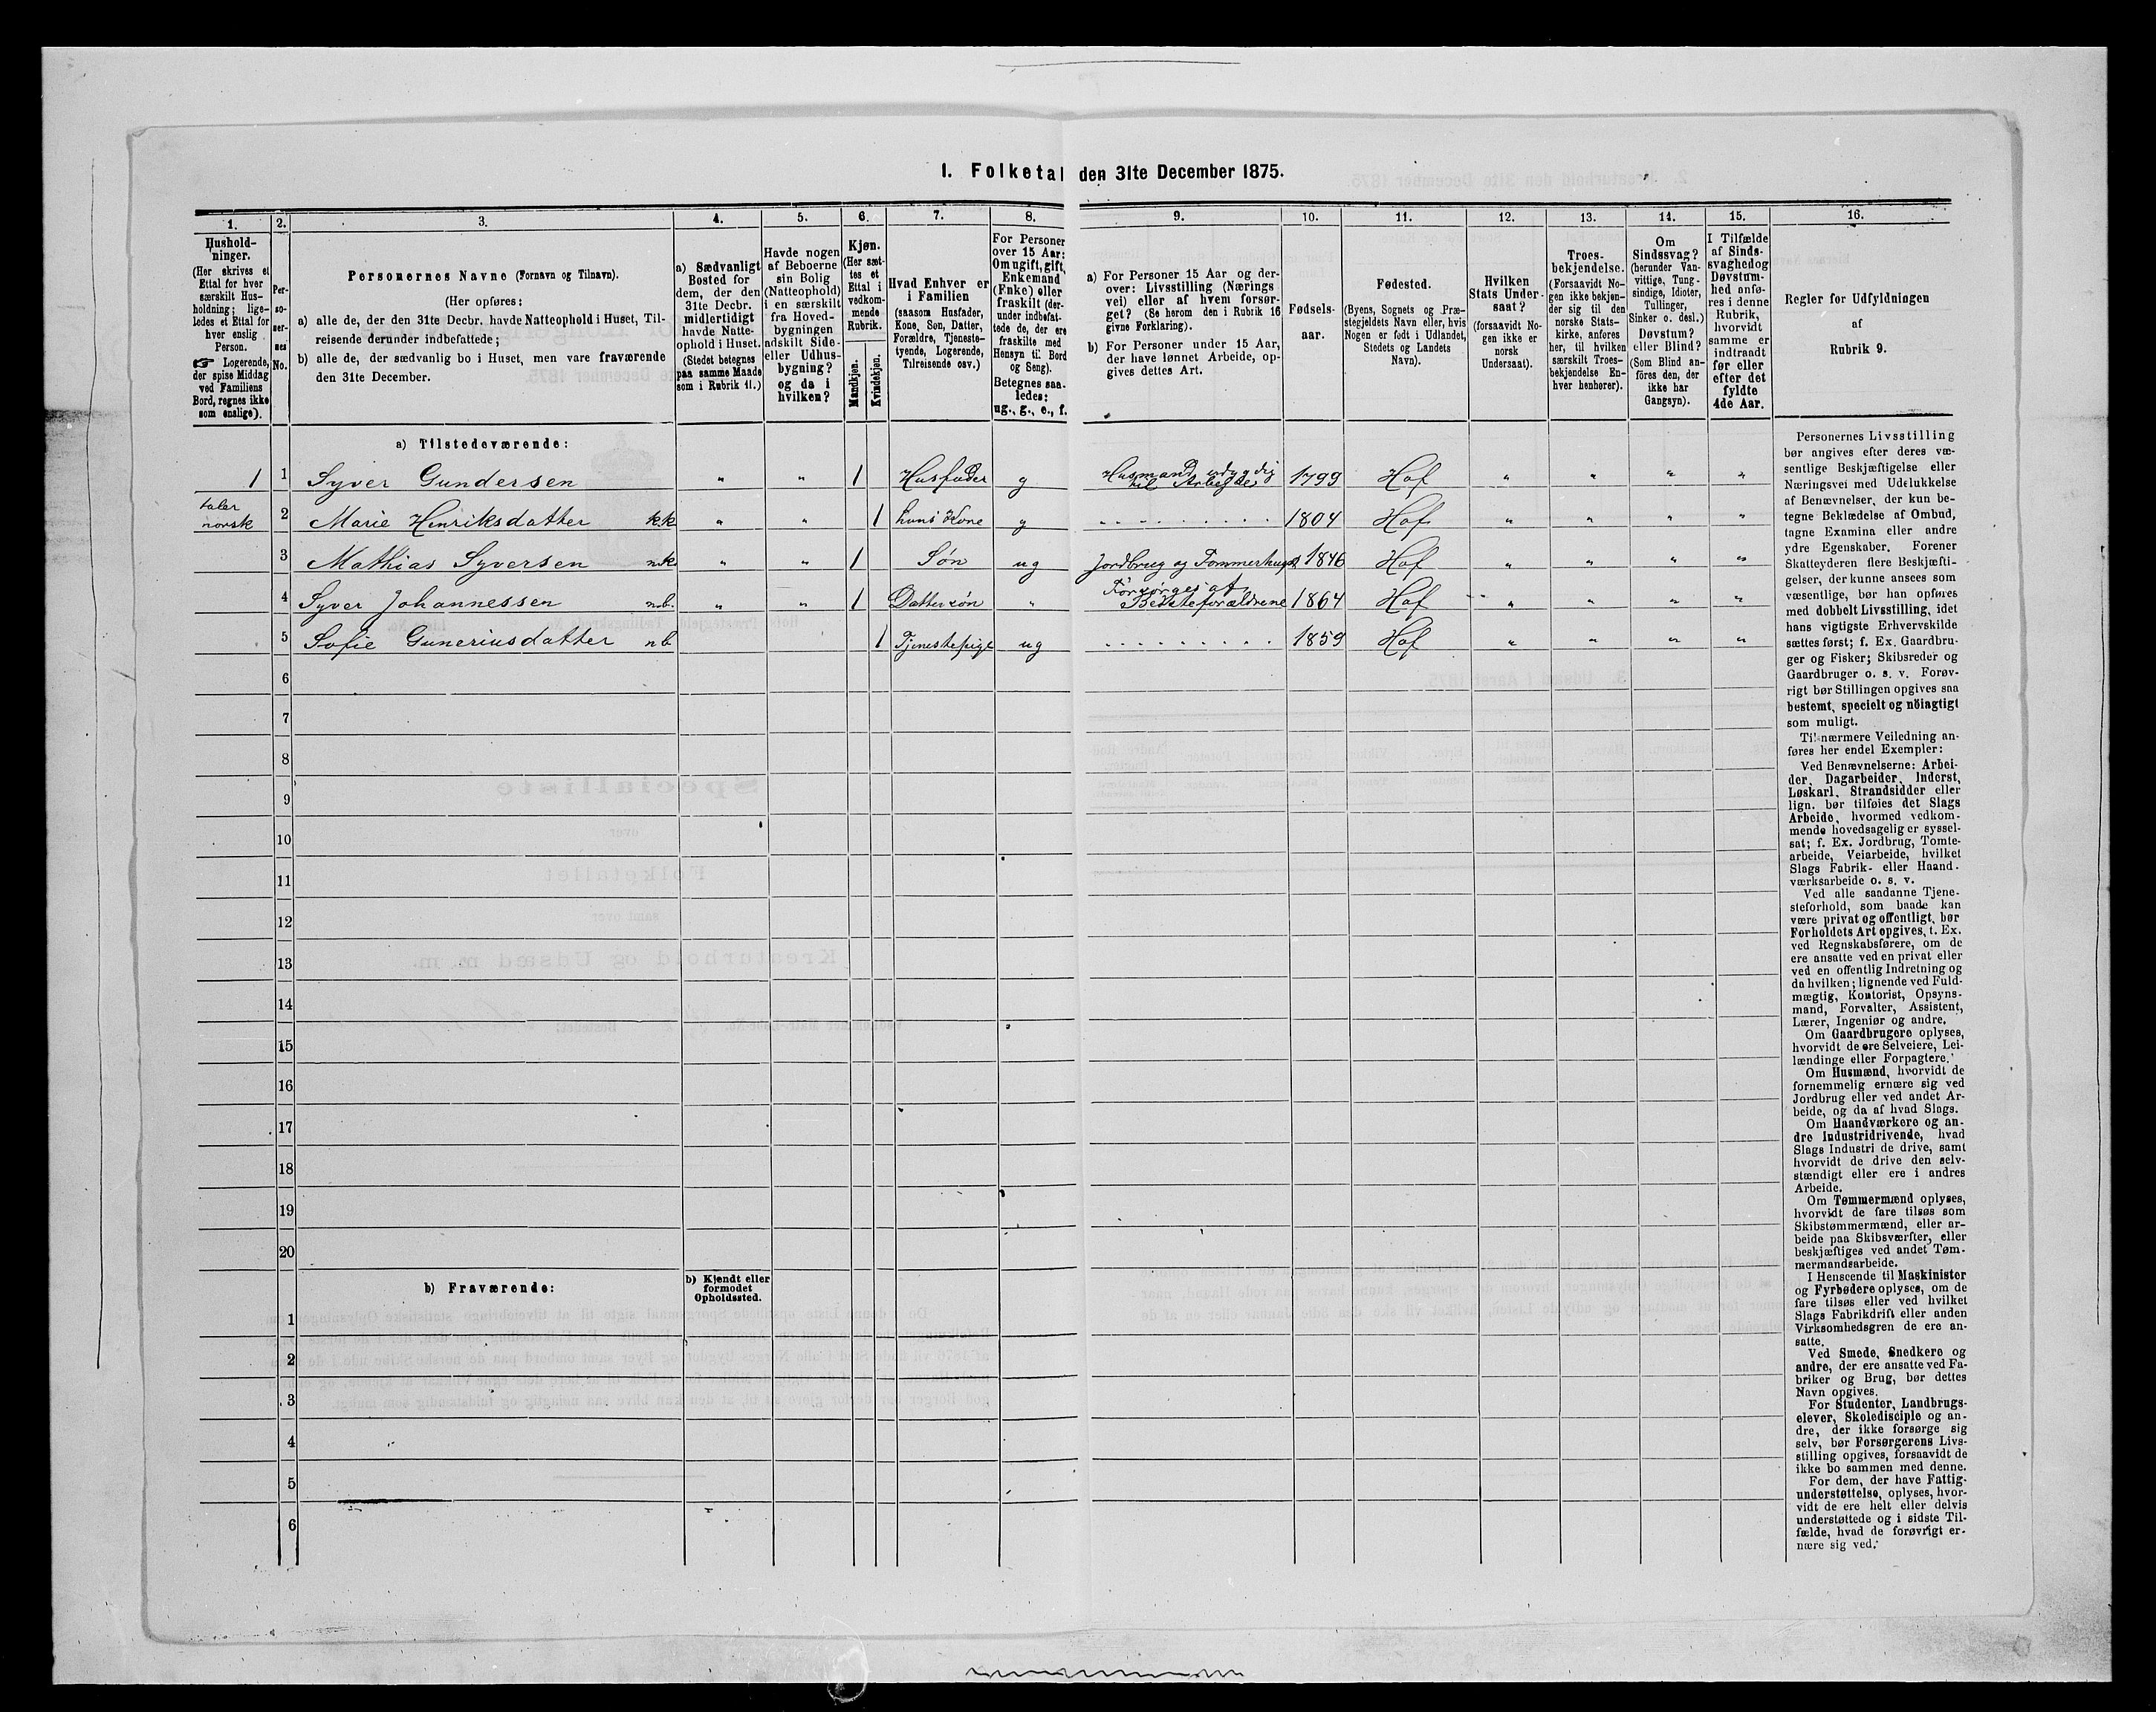 1. Folketal den 31te December 1875.
1.
Hushold-
ninger.
(Her skrives et
Ettal for hver
særskilt Hus-
holdning; lige-
ledes et Ettal for
hver enslig
Person.
☞ Logerende,
der spise Middag
ved Familiens
Bord, regnes ikke
som enslige).
2.
Per-
so-
ner-
nes
No.
3.
Personernes Navne (Fornavn og Tilnavn).
(Her opføres:
a) alle de, der den 31te Decbr. havde Natteophold i Huset, Til-
reisende derunder indbefattede;
b) alle de, der sædvanlig bo i Huset, men vare fraværende
den 31te December.
4.
a) Sædvanligt
Bosted for
dem, der den
31te Decbr.
midlertidigt
havde Natte-
ophold i Huset.
(Stedet betegnes
paa samme Maade
som i Rubrik 11.)
5.
Havde nogen
af Beboerne
sin Bolig
(Natteophold)
i en særskilt
fra Hoved-
bygningen
adskilt Side-
eller Udhus-
bygning?
og da i
hvilken?
6.
Kjøn.
(Her sæt-
tes et
Ettal i
vedkom-
mende
Rubrik.
Mandkjøn.
Kvindekjøn.
7.
Hvad Enhver er
i Familien
(saasom Husfader,
Kone, Søn, Datter,
Forældre, Tjeneste-
tyende, Logerende,
Tilreisende osv.)
8.
For Personer
over 15 Aar:
Om ugift, gift,
Enkemand
(Enke) eller
fraskilt (der-
under indbefat-
tede de, der ere
fraskilte med
Hensyn til Bord
og Seng).
Betegnes saa-
ledes:
ug., g., e., f.
9.
a) For Personer 15 Aar og der-
over: Livsstilling (Nærings
vei) eller af hvem forsør-
get? (Se herom den i Rubrik 16
givne Forklaring).
b) For Personer under 15 Aar,
der have lønnet Arbeide, op-
gives dettes Art.
10.
Fødsels-
aar.
11.
Fødested.
(Byens, Sognets og Præ-
stegjeldets Navn eller, hvis
Nogen er født i Udlandet,
Stedets og Landets
Navn).
12.
Hvilken
Stats Under-
saat?
(forsaavidt No-
gen ikke er
norsk
Undersaat).
13.
Troes-
bekjendelse.
(Forsaavidt No-
gen ikke bekjen-
der sig til den
norske Stats-
kirke, anføres
her, til hvilken
særskilt Troes-
bekjendelse En-
hver henhører).
14.
Om
Sindssvag?
(herunder Van-
vittige, Tung-
sindige, Idioter,
Tullinger,
Sinker o. desl.)
Døvstum?
eller Blind?
(Som Blind an-
føres den, der
ikke har
Gangsyn).
15.
I Tilfælde
af Sinds-
svaghed og
Døvstum-
hed anfø-
res i denne
Rubrik,
hvorvidt
samme er
indtraadt
før eller
efter det
fyldte
4de Aar.
16.
Regler for Udfyldningen
af
Rubrik 9.
a) Tilstedeværende:
1 1 Syver Gundersen " " 1 Husfader g Husmand udygdig til Arbeide 1799 Hof " " " "
taler
norsk
2 Marie Henriksdatter k.k " " 1 hans Kone g " 1804 Hof " " " "
3 Mathias Syversen n.k. " " 1 Søn ug Jordbrug og Tømmerhugst 1846 Hof " " " "
4 Syver Johannessen n.b. " " 1 Dattersøn " Forsørges af Bedsteforældrene 1864 Hof " " " "
5 Sofie Guneriusdatter n.b 1 Tjenestepige ug " 1859 Hof " " " "
6
7
8
9
10
11
12
13
14
15
16
17
18
19
20
b) Fraværende:
b) Kjendt eller
formodet
Opholdssted.
1
2
3
4
5
6
Personernes Livsstilling
bør angives efter deres væ-
sentlige Beskjæftigelse eller
Næringsvei med Udelukkelse
af Benævnelser, der kun be-
tegne Beklædelse af Ombud,
tagne Examina eller andre
ydre Egenskaber. Forener
Skatteyderen flere Beskjæfti-
gelser, der kunne ansees som
væsentlige, bør han opføres
med dobbelt Livsstilling, idet
hans vigtigste Erhvervskilde
sættes først; f. Ex. Gaardbru-
ger og Fisker; Skibsreder og
Gaardbruger o. s. v. Forøv-
rigt bør Stillingen opgives saa
bestemt, specielt og nöiagtigt
som muligt.
Til nærmere Veiledning an-
føres her endel Exempler:
Ved Benævnelserne: Arbei-
der, Dagarbeider, Inderst,
Løskarl, Strandsidder eller
lign. bør tilføies det Slags
Arbeide, hvormed vedkom-
mende hovedsagelig er syssel-
sat; f. Ex. Jordbrug, Tomte-
arbeide, Veiarbeide, hvilket
Slags Fabrik- eller Haand-
værksarbeide o. s. v.
Ved alle saadanne Tjene-
steforhold, som baade kan
være privat og offentligt, bør
Forholdets Art opgives, t. Ex.
ved Regnskabsførere, om de
ere ansatte ved en privat eller
ved en offentlig Indretning og
da hvilken; lignende ved Fuld-
mægtig, Kontorist, Opsyns-
mand, Forvalter, Assistent,
Lærer, Ingeniør og andre.
Om Gaardbrugere oplyses,
hvorvidt de ere Selveiere, Lei-
lændinge eller Forpagtere.
Om Husmænd, hvorvidt de
fornemmelig ernære sig ved
Jordbrug eller ved andet Ar-
beide, og da af hvad Slags.
Om Haandværkere og an-
dre Industridrivende, hvad
Slags Industri de drive, samt
hvorvidt de drive den selv-
stændigt eller ere i andres
Arbeide.
Om Tømmermænd oplyses,
hvorvidt de fare tilsøs som
Skibstømmermænd, eller ar-
beide paa Skibsværfter, eller
beskjæftiges ved andet Tøm-
mermandsarbeide.
I Henseende til Maskinister
og Fyrbødere oplyses, om de
fare tilsøs eller ved hvilket
Slags Fabrikdrift eller anden
Virksomhedsgren de ere an-
satte.
Ved Smede, Snedkere og
andre, der ere ansatte ved Fa-
briker og Brug, bør dettes
Navn opgives.
For Studenter, Landbrugs-
elever, Skoledisciple og an-
dre, der ikke forsørge sig
selv, bør Forsørgerens Livs-
stilling opgives, forsaavidt de
ikke bo sammen med denne.
For dem, der have Fattig-
understøttelse, oplyses, hvor-
vidt de ere helt eller delvis
understøttede og i sidste Til-
fælde, hvad de forøvrigt er-
nære sig ved.